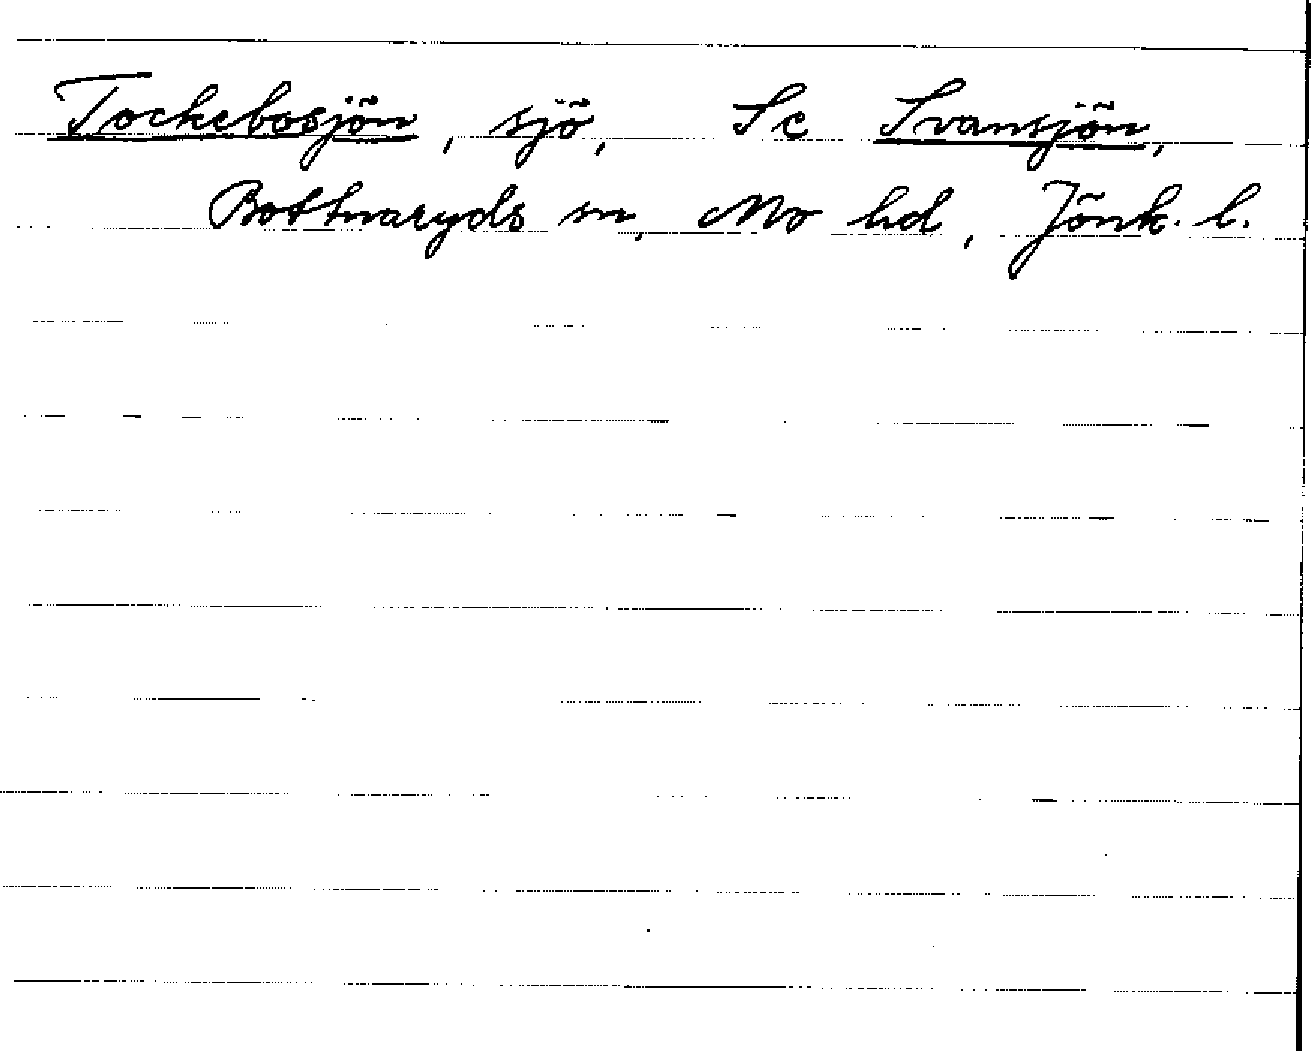 Tockebosjön, sjö, Se Svansjön,
Bottnaryds sn, Mo hd, Jönk. l.